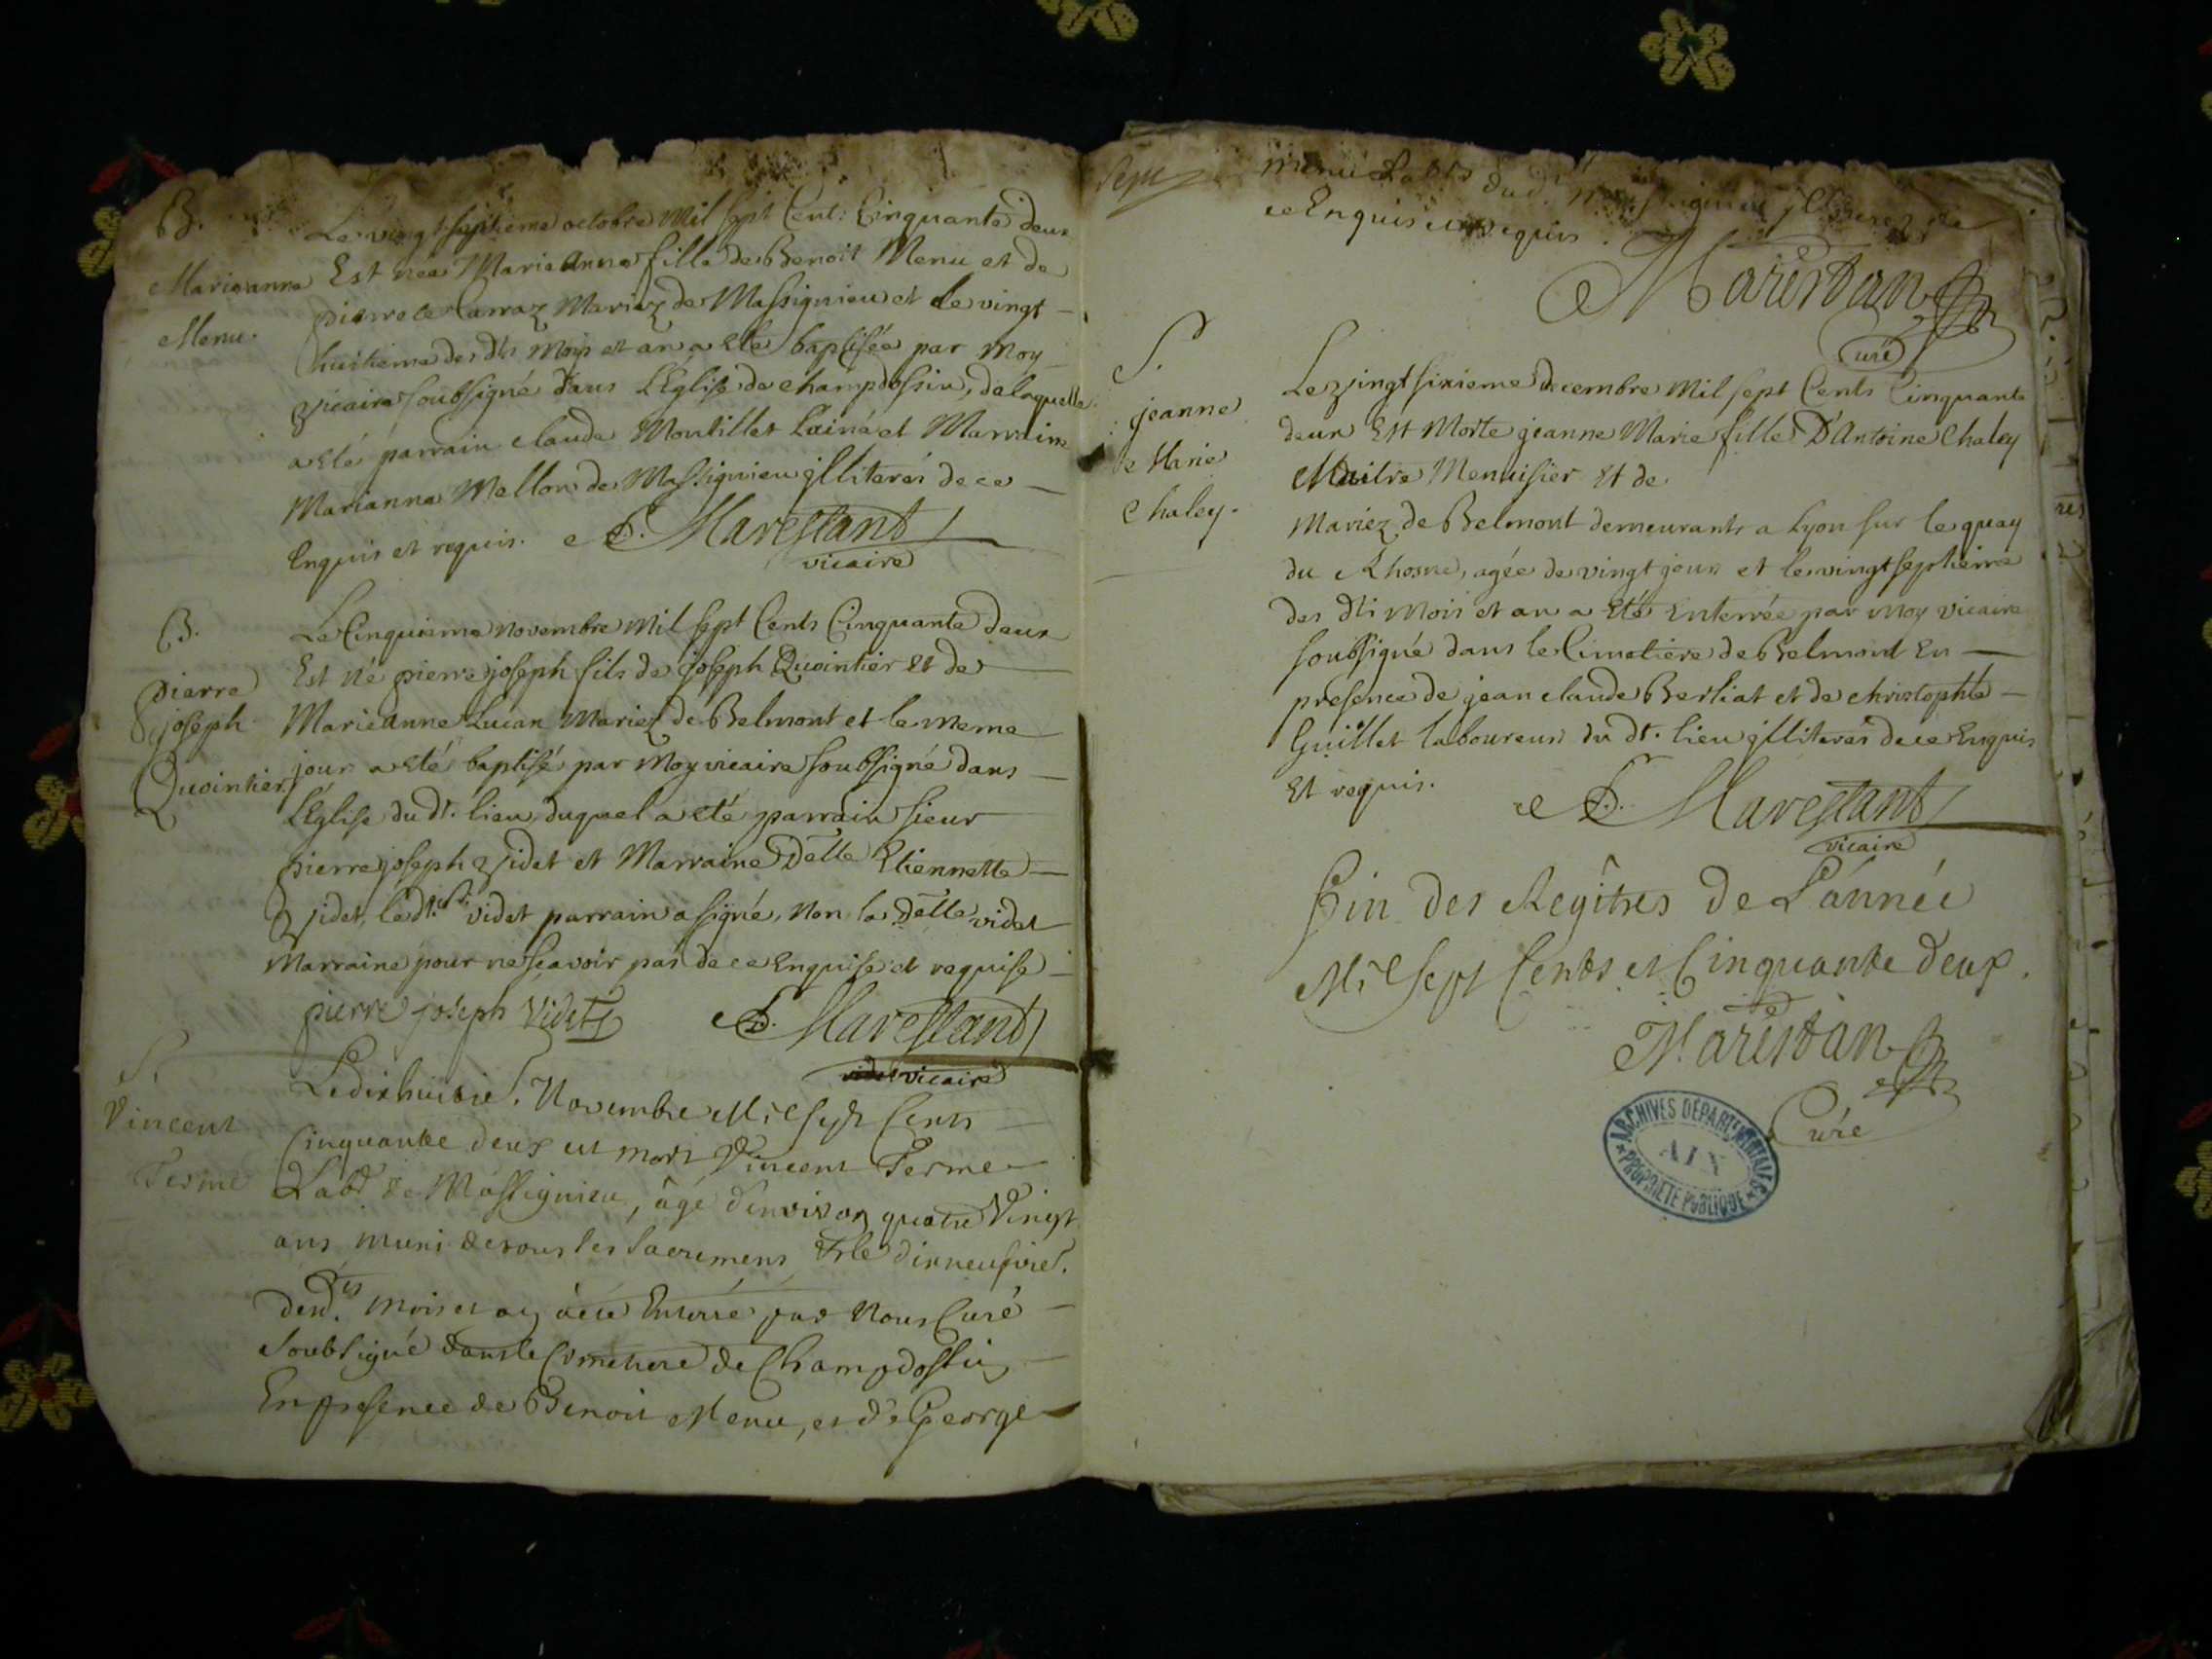 B.
Marieanne
Menu.
Le vingt septieme octobre Mil sept Cent: Cinquante deux
Est née Marie Anne fille de Benoit Menu et de
pierrete Carraz Mariez de Massignieu et le vingt
huitieme des dts mois et an a eté baptisée par Moy
vicaire soubsigné dans L'Eglise de champdossin, de laquelle
a eté parrain claude Montillet Lainé et Marraine
Marianne Mellon de Massignieu jlliterés de ce
Enquis et requis. Marestant
vicaire
B.
pierre
joseph
Quointier
Le Cinquieme novembre Mil sept Cents Cinquante deux
Est né pierre joseph fils de joseph Quointier et de
Marieanne Lucan Mariez de Belmont et le meme
jour a eté baptisé par Moy vicaire soubsigné dans
L'Eglise du dt. lieu, duquel a eté parrain sieur
pierre joseph Videt et Marraine Delle Etiennette
Videt, le dt. sr. videt parrain a signé, non la Delle videt
Marraine pour ne sçavoir pas de ce Enquise et requise
pierre joseph Videt Marestant
vicaire
S.
Vincent
Ferme
Le dixhuitie. Novembre Mil sept Cents
Cinquante deux est mort Vincent Ferme
Labr de Massignieu, âgé d'environ quatre Vingt
ans muni de tous les Sacremens, et le dixneufvie.
desd.ts mois et an a été Enterré par Nous Curé
soubsigné dans le Cimetiere de Champdossin
En presence de Benoit Menu, et de George
menu Labrs dud.
ce Enquis et requis.
Marestan
Curé
S.
jeanne
Marie
Chaley.
Le vingt sixieme decembre Mil sept Cents Cinquante
deux Est Morte jeanne Marie fille D'Antoine Chaley
Maitre Menuisier et de
Mariez de Belmont demeurants a Lyon sur le quay
du Rhosne, agée de vingt jours et le vingt septieme
des dts mois et an a eté Enterrée par moy vicaire
soubsigné dans le Cimetiere de Belmont En
presence de jean claude Berliat et de christophle
Guillet laboureurs du dt. lieu jlliterés de ce Enquis
Et requis.
Marestant
vicaire
Fin des Regîtres de L'année
Mil sept Cents et Cinquante deux.
Marestan
Curé
ARCHIVES DÉPARTEMENTALES
AIN
PROPRIÉTÉ PUBLIQUE